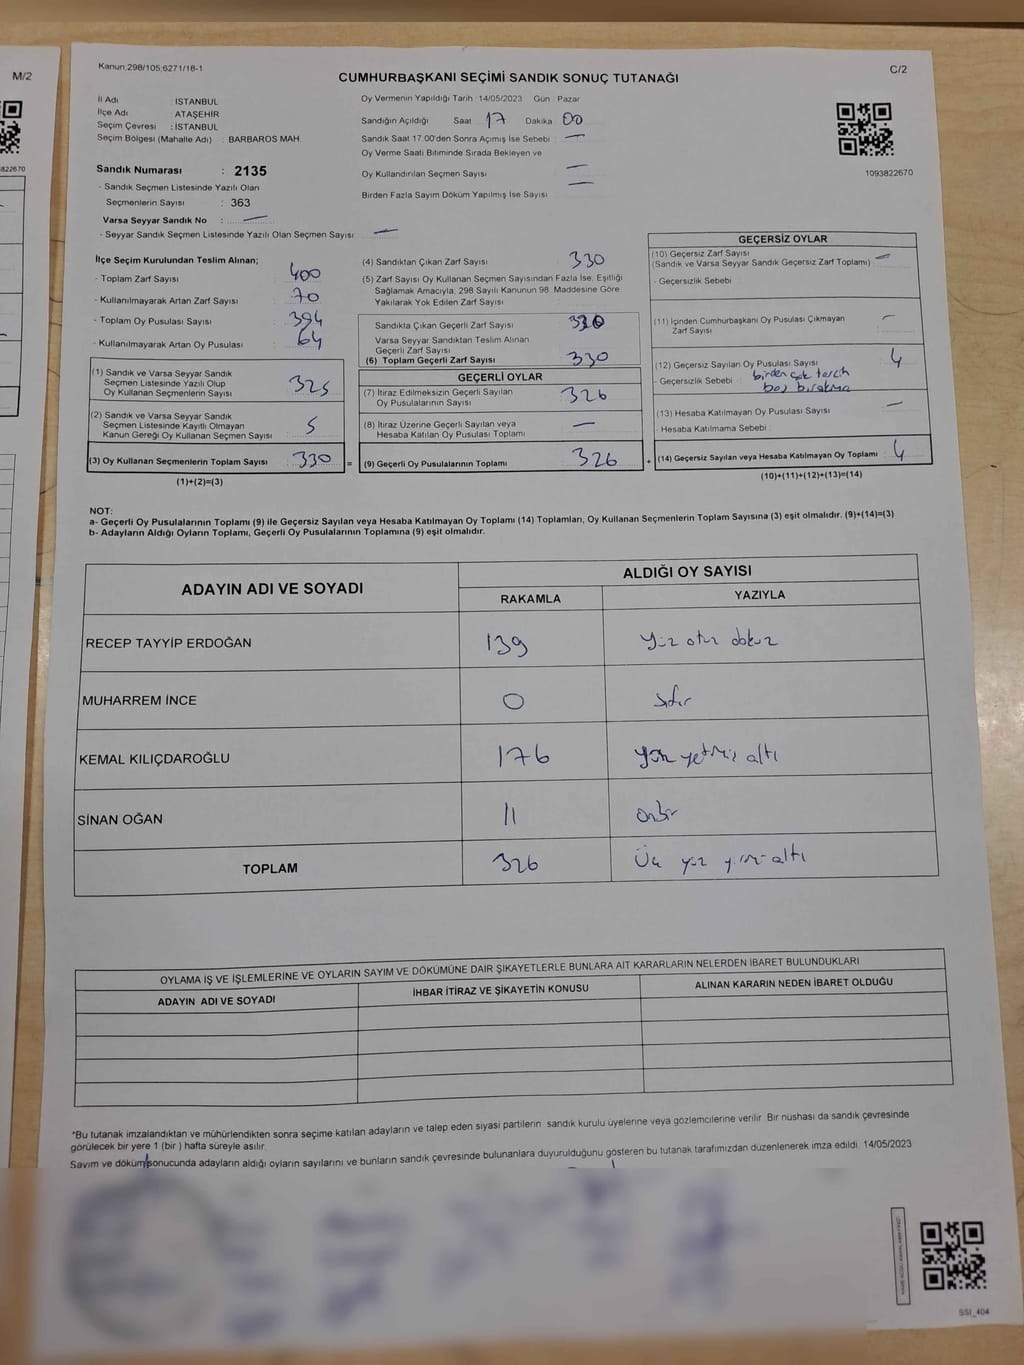 M/2
822670
Kanun:298/105;6271/18-1
C/2
CUMHURBAŞKANI SEÇİMİ SANDIK SONUÇ TUTANAĞI
İl Adı : İSTANBUL
İlçe Adı : ATAŞEHİR
Seçim Çevresi : İSTANBUL
Seçim Bölgesi (Mahalle Adı) : BARBAROS MAH.
Oy Vermenin Yapıldığı Tarih : 14/05/2023 Gün : Pazar
Sandığın Açıldığı Saat 17 Dakika 00
Sandık Saat 17:00'den Sonra Açımış İse Sebebi : —
Oy Verme Saati Bitiminde Sırada Bekleyen ve
Oy Kullandırılan Seçmen Sayısı : —
Birden Fazla Sayım Döküm Yapılmış İse Sayısı : —
1093822670
Sandık Numarası : 2135
- Sandık Seçmen Listesinde Yazılı Olan
Seçmenlerin Sayısı : 363
Varsa Seyyar Sandık No : —
- Seyyar Sandık Seçmen Listesinde Yazılı Olan Seçmen Sayısı : —
İlçe Seçim Kurulundan Teslim Alınan;
- Toplam Zarf Sayısı : 400
- Kullanılmayarak Artan Zarf Sayısı : 70
- Toplam Oy Pusulası Sayısı : 394
- Kullanılmayarak Artan Oy Pusulası : 64
(1) Sandık ve Varsa Seyyar Sandık
Seçmen Listesinde Yazılı Olup
Oy Kullanan Seçmenlerin Sayısı 325
(2) Sandık ve Varsa Seyyar Sandık
Seçmen Listesinde Kayıtlı Olmayan
Kanun Gereği Oy Kullanan Seçmen Sayısı 5
(3) Oy Kullanan Seçmenlerin Toplam Sayısı 330 =
(1)+(2)=(3)
(4) Sandıktan Çıkan Zarf Sayısı : 330
(5) Zarf Sayısı Oy Kullanan Seçmen Sayısından Fazla İse, Eşitliği
Sağlamak Amacıyla, 298 Sayılı Kanunun 98. Maddesine Göre
Yakılarak Yok Edilen Zarf Sayısı
Sandıkta Çıkan Geçerli Zarf Sayısı 330
Varsa Seyyar Sandıktan Teslim Alınan
Geçerli Zarf Sayısı
(6) Toplam Geçerli Zarf Sayısı 330
GEÇERLİ OYLAR
(7) İtiraz Edilmeksizin Geçerli Sayılan
Oy Pusulalarının Sayısı 326
(8) İtiraz Üzerine Geçerli Sayılan veya
Hesaba Katılan Oy Pusulası Toplamı —
(9) Geçerli Oy Pusulalarının Toplamı 326 +
GEÇERSİZ OYLAR
(10) Geçersiz Zarf Sayısı
(Sandık ve Varsa Seyyar Sandık Geçersiz Zarf Toplamı) —
- Geçersizlik Sebebi :
(11) İçinden Cumhurbaşkanı Oy Pusulası Çıkmayan
Zarf Sayısı —
(12) Geçersiz Sayılan Oy Pusulası Sayısı 4
- Geçersizlik Sebebi : birden çok tercih
boş bırakma
(13) Hesaba Katılmayan Oy Pusulası Sayısı —
- Hesaba Katılmama Sebebi :
(14) Geçersiz Sayılan veya Hesaba Katılmayan Oy Toplamı 4
(10)+(11)+(12)+(13)=(14)
NOT:
a- Geçerli Oy Pusulalarının Toplamı (9) ile Geçersiz Sayılan veya Hesaba Katılmayan Oy Toplamı (14) Toplamları, Oy Kullanan Seçmenlerin Toplam Sayısına (3) eşit olmalıdır. (9)+(14)=(3)
b- Adayların Aldığı Oyların Toplamı, Geçerli Oy Pusulalarının Toplamına (9) eşit olmalıdır.
ADAYIN ADI VE SOYADI
ALDIĞI OY SAYISI
RAKAMLA YAZIYLA
RECEP TAYYİP ERDOĞAN 139 Yüz otuz dokuz
MUHARREM İNCE 0 sıfır
KEMAL KILIÇDAROĞLU 176 Yüz yetmiş altı
SİNAN OĞAN 11 onbir
TOPLAM 326 Üç yüz yirmi altı
OYLAMA İŞ VE İŞLEMLERİNE VE OYLARIN SAYIM VE DÖKÜMÜNE DAİR ŞİKAYETLERLE BUNLARA AİT KARARLARIN NELERDEN İBARET BULUNDUKLARI
ADAYIN ADI VE SOYADI İHBAR İTİRAZ VE ŞİKAYETİN KONUSU ALINAN KARARIN NEDEN İBARET OLDUĞU
*Bu tutanak imzalandıktan ve mühürlendikten sonra seçime katılan adayların ve talep eden siyasi partilerin sandık kurulu üyelerine veya gözlemcilerine verilir. Bir nüshası da sandık çevresinde
görülecek bir yere 1 (bir ) hafta süreyle asılır.
Sayım ve döküm sonucunda adayların aldığı oyların sayılarını ve bunların sandık çevresinde bulunanlara duyurulduğunu gösteren bu tutanak tarafımızdan düzenlenerek imza edildi. 14/05/2023
SSI_404